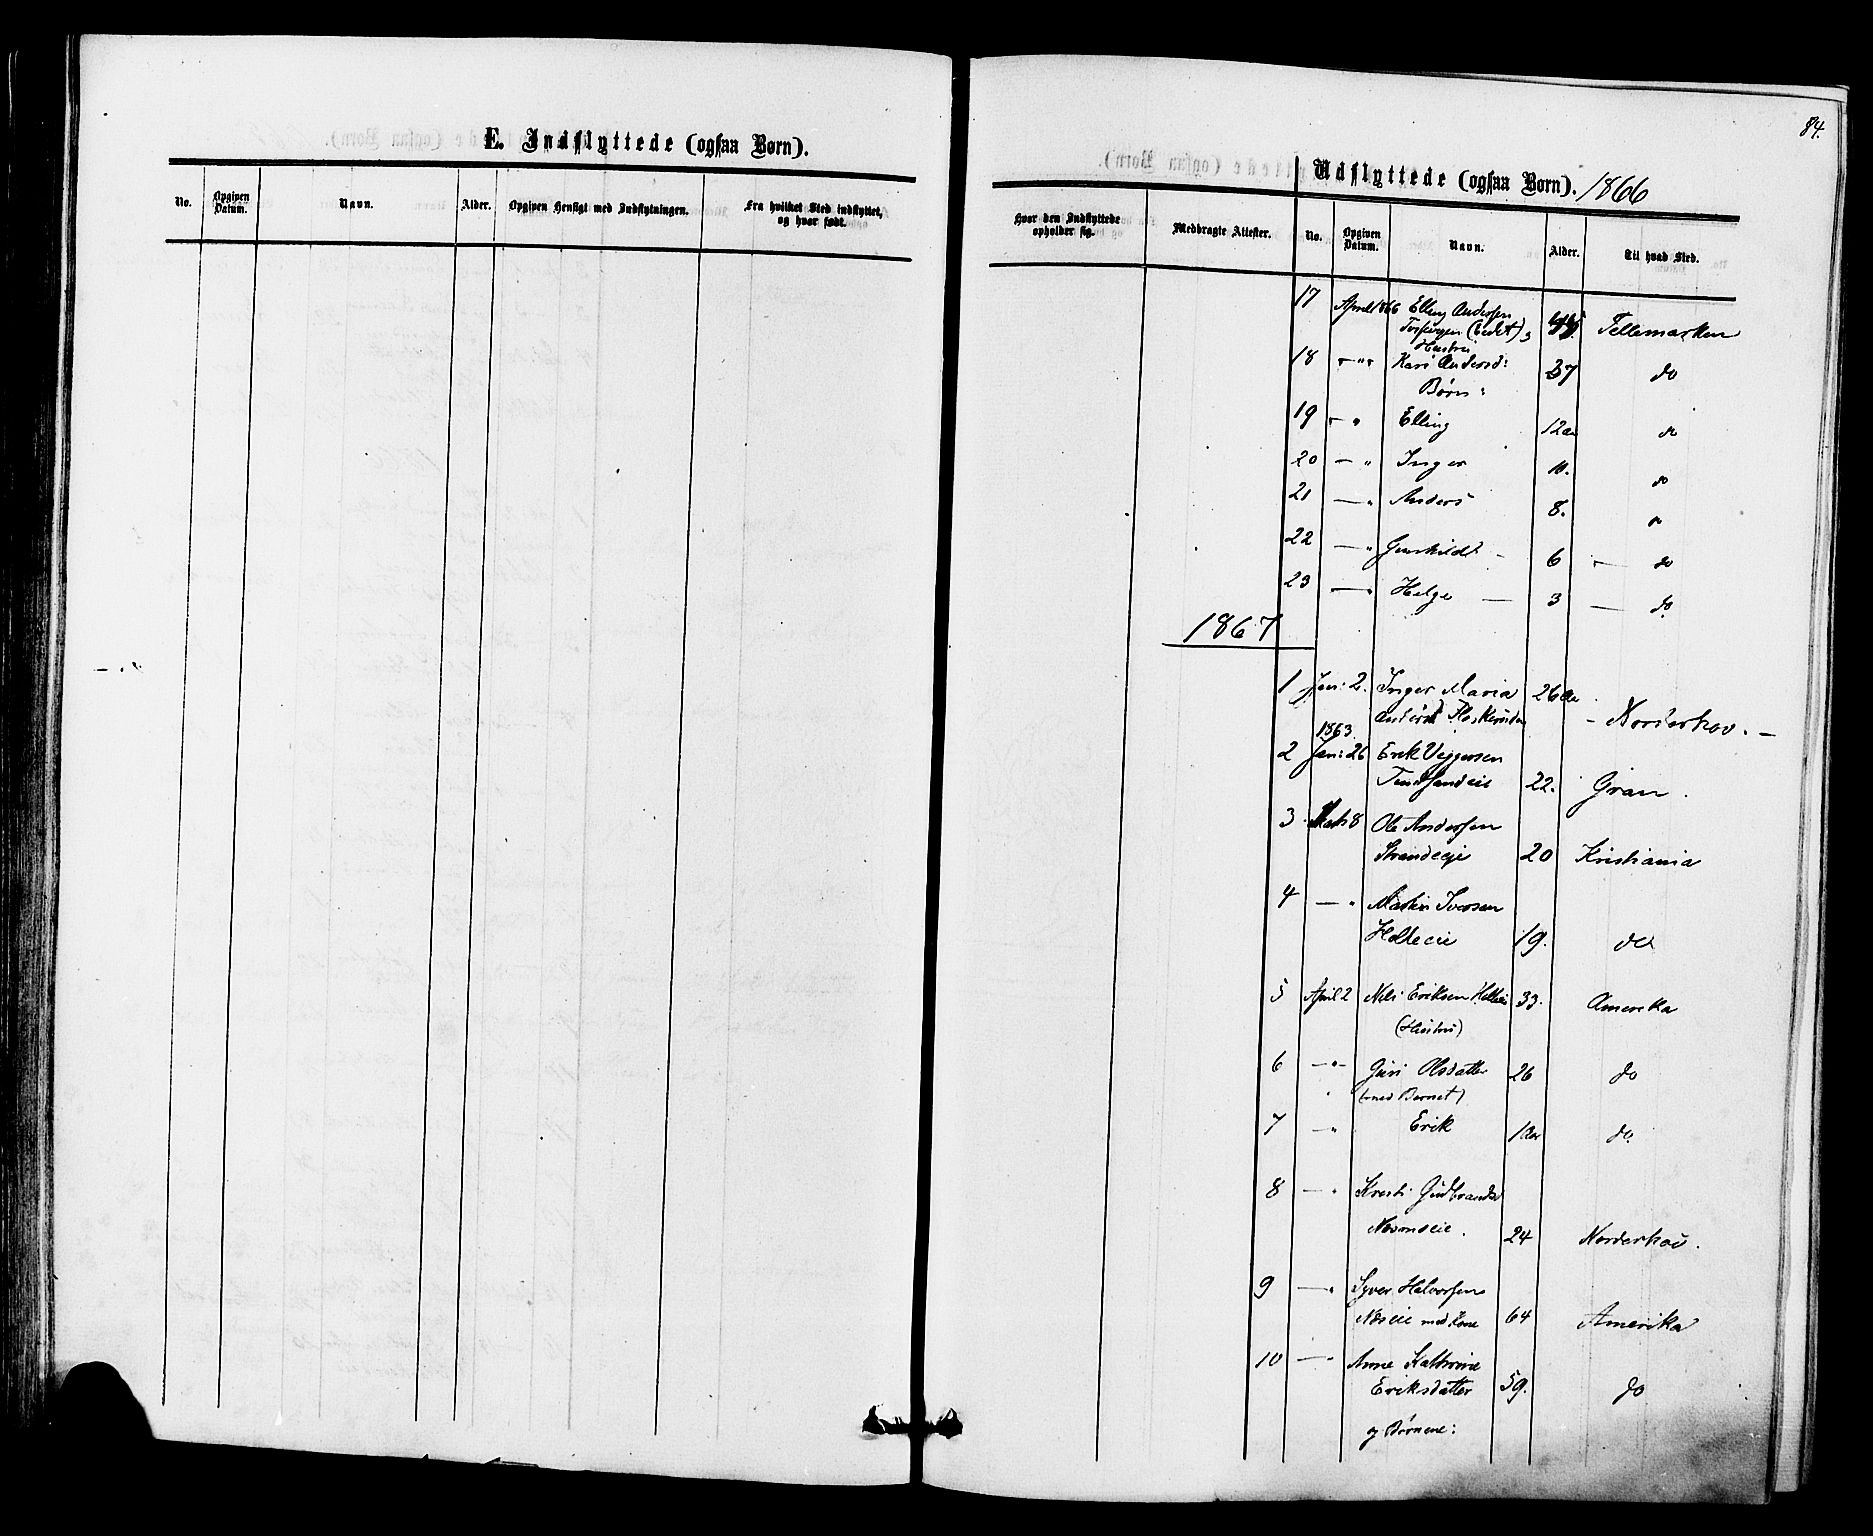 84.
E. Indflyttede (ogsaa Børn).
No. Opgiven Datum. Navn. Alder. Opgiven Hensigt med Indflytningen. Fra hvilket Sted indflyttet, og hvor født.
Udflyttede (ogsaa Børn). 1866
Hvor den Indflyttede opholder sig. Medbragte Attester. No. Opgiven Datum. Navn. Alder. Til hvad Sted.
17 April 1866 Elling Andersen
Tellemarken
Hustru
18 — " " Kari Andersd: 37 do
Børn:
19 — " Elling 12 do
20 — " Inger 10. do
21 — " Anders 8. do
22 — " Gunhild 6 — do
23 — " Helge — 3 — do
1867
1 Jan: 2. Inger Maria 26
Andersd — Norderhov. —
1863
2 Jan: 26 Erik
22. Gran.
3 8 Ole Andersen
Strandeie 20 Kristiania
4 — " Martin Iversen
19. do
5 April 2 Nils Eriksen 33. Amerika
(Hustru)
6 — " — Guri Olsdatter 26 do
(med Barnet)
7 — " Erik 1 do.
8 — " Kristi Gudbrandsd
24 Norderhov.
9 — " Syver Halvorsen
Næseie med Kone 64 Amerika
10 — " Anne Kathrine
Eriksdatter 59. do
og Børnene: